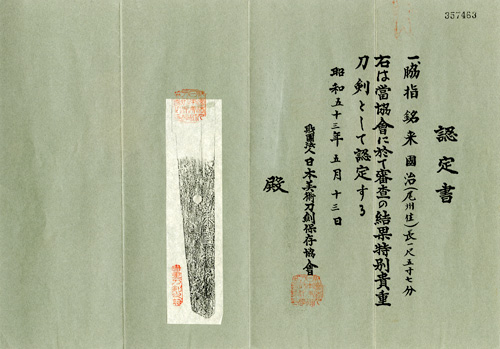 357463
認定書
一、脇指 銘 來國治(尾州住)長一尺五寸七分
右は當協會に於て審査の結果特別貴重
刀剣として認定する
昭和五十三年五月十三日
財團法人日本美術刀剣保存協會
殿